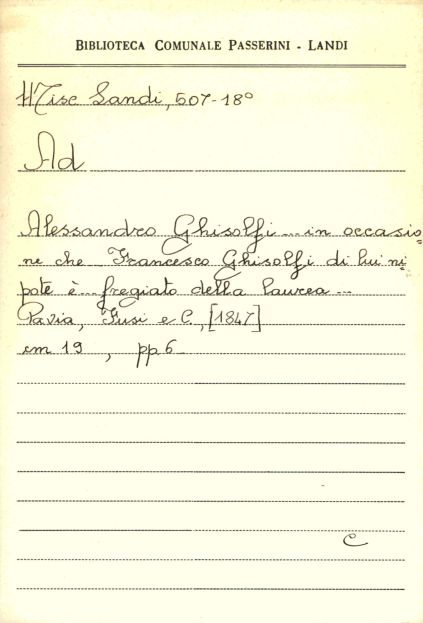 BIBLIOTECA COMUNALE PASSERINI - LANDI
Misc Landi, 507-18°
Ad
Alessandro Ghisolfi ... in occasio=
ne che Francesco Ghisolfi di lui ni=
pote è ... fregiato della laurea ...
Pavia, Fusi e C., [1847]
cm 19 , pp. 6
C